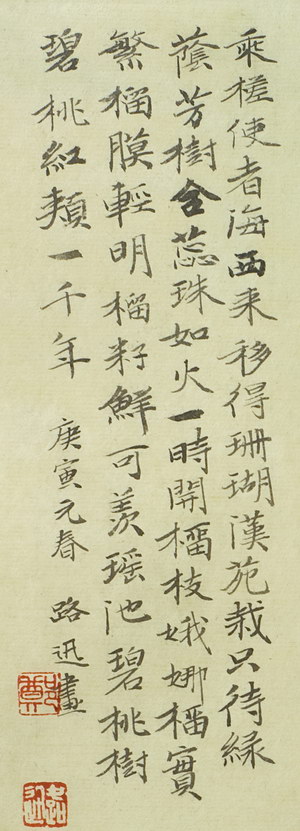 乘槎使者海西来移得珊瑚漢苑栽只待緑
蔭芳樹合蕊珠如火一時開榴枝娥娜榴實
繁榴膜輕明榴籽鮮可羨瑶池碧桃樹
碧桃紅頰一千年 庚寅元春 路迅畫